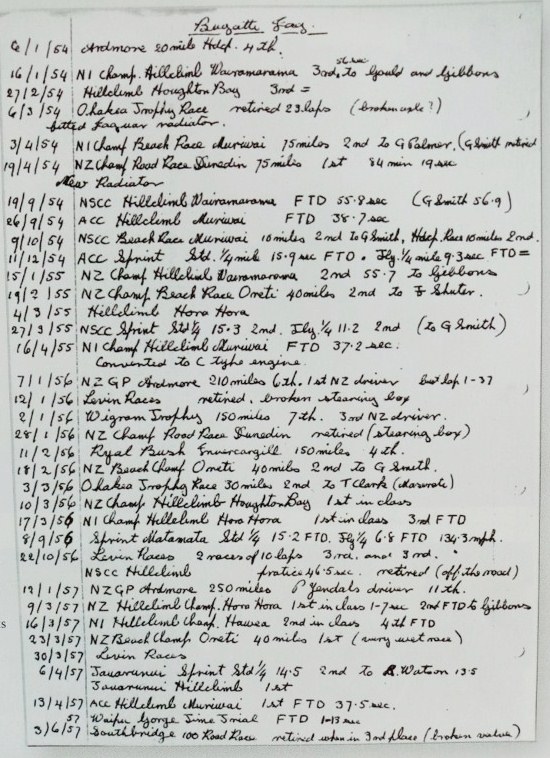 Bugatti Jag.
6/1/54 Ardmore 20 mile Hdcp. 4th.
56 sec
16/1/54 NI Champ. Hillclimb Wairamarama 3rd, to Gould and Gibbons
27/2/54 Hillclimb Houghton Bay 3rd =
6/3/54 Ohakea Trophy Race retired 23 laps (broken axle?)
fitted Jaguar radiator.
3/4/54 NI Champ Beach Race Muriwai 75 miles 2nd to G Palmer. (G Smith retired
19/4/54 NZ Champ Road Race Dunedin 75 miles 1st 84 min 19 sec
New Radiator
19/9/54 NSCC Hillclimb Wairamarama FTD 55.8 sec (G Smith 56.9)
26/9/54 ACC Hillclimb Muriwai FTD 38.7 sec
9/10/54 NSCC Beach Race Muriwai 10 miles 2nd to G Smith, Hdcp. Race 10 miles 2nd.
11/12/54 ACC Sprint Std. ¼ mile 15.9 sec FTD. Fly. ¼ mile 9.3 sec FTD =
15/1/55 NZ Champ Hillclimb Wairamarama 2nd 55.7 to Gibbons
19/2/55 NZ Champ Beach Race Oreti 40 miles 2nd to F Shuter.
4/3/55 Hillclimb Hora Hora
27/3/55 NSCC Sprint Std ¼ 15.3 2nd. Fly. ¼ 11.2 2nd (to G Smith)
16/4/55 NI Champ Hillclimb Muriwai FTD 37.2 sec.
Converted to C type engine.
7/1/56 NZ GP Ardmore 210 miles 6th. 1st NZ driver best lap 1-37
12/1/56 Levin Races retired, broken stearing box
2/1/56 Wigram Trophy 150 miles 7th. 3rd NZ driver.
28/1/56 NZ Champ Road Race Dunedin retired (stearing box)
11/2/56 Ryal Bush Envercargill 150 miles 4th.
18/2/56 NZ Beach Champ Oreti 40 miles 2nd to G Smith.
3/3/56 Ohakea Trophy Race 30 miles 2nd to T Clark (Maserati)
10/3/56 NZ Champ Hillclimb Houghton Bay 1st in class
17/3/56 NI Champ Hillclimb Hora Hora 1st in class 3rd FTD
8/9/56 Sprint Matamata Std ¼ 15.2 FTD. Fly ¼ 6.8 FTD 134.3 mph.
22/10/56 Levin Races 2 races of 10 laps 3rd. and 3rd.
NSCC Hillclimb pratice 46.5 sec. retired (off the road)
12/1/57 NZGP Ardmore 250 miles P Yendals driver 11th.
9/3/57 NZ Hillclimb Champ. Hora Hora 1st in class 1-7 sec 2nd FTD to Gibbons
16/3/57 NI Hillclimb Champ. Hawea 2nd in class 4th FTD
23/3/57 NZ Beach Champ Oreti 40 miles 1st (very wet race)
30/3/57 Levin Races
6/4/57 Tauaranui Sprint Std ¼ 14.5 2nd to R. Watson 13.5
Tauaranui Hillclimb 1st
13/4/57 ACC Hillclimb Muriwai 1st FTD 37.5 sec.
57 Waipu Gorge Time Trial FTD 1-13 sec
3/6/57 Southbridge 100 Road Race retired when in 3rd place (broken valve)
s